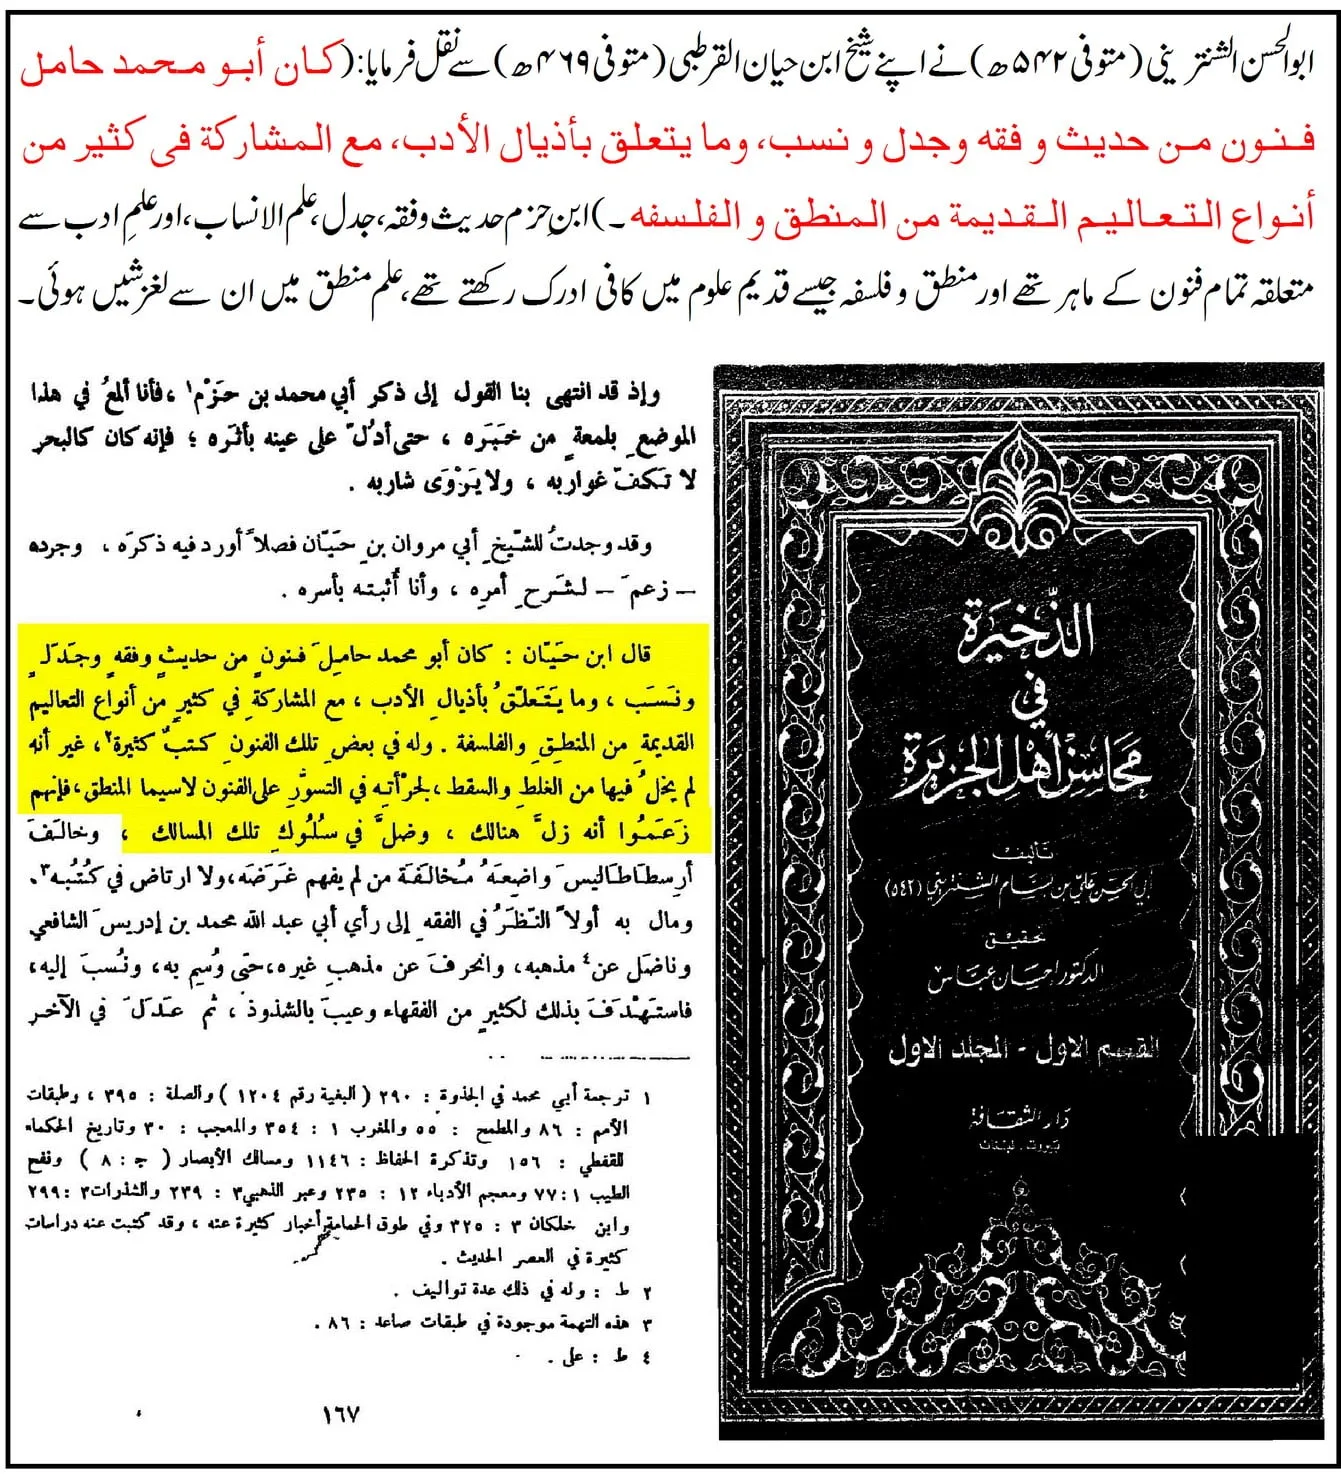 ابوالحسن الشنترینی (متوفی ۵۴۲ھ) نے اپنے شیخ ابن حیان القرطبی (متوفی ۴۶۹ھ) سے نقل فرمایا: (کان أبو محمد حامل
فنون من حدیث و فقه وجدل و نسب، وما یتعلق بأذیال الأدب، مع المشارکة فی کثیر من
أنواع التعالیم القدیمة من المنطق و الفلسفه۔) ابنِ حزم حدیث وفقہ، جدل، علم الانساب، اور علمِ ادب سے
متعلقہ تمام فنون کے ماہر تھے اور منطق و فلسفہ جیسے قدیم علوم میں کافی ادرک رکھتے تھے، علم منطق میں ان سے لغزشیں ہوئی۔
وإذ قد انتهى بنا القول إلى ذكر أبي محمد بن حَزْم١، فأنا ألمعُ في هذا
الموضعِ بلمعةٍ من خَبَره ، حتى أدُلّ على عينه بأثَره ؛ فإنه كان كالبحر
لا تكفّ غواربه ، ولا يَرْوَى شاربه .
وقد وجدتُ للشّيخِ أبي مروان بنِ حَيّان فصلاً أورد فيه ذكرَه ، وجرده
– زعمَ – لشَرحِ أمرِه ، وأنا أُثبته بأسره .
قال ابن حَيّان : كان أبو محمد حاملَ فنونٍ من حديثٍ وفقهٍ وجَدَلٍ
ونَسَب ، وما يَتَعلّقُ بأذيالِ الأدب ، مع المشاركةِ في كثيرٍ من أنواع التعاليم
القديمةِ من المنطقِ والفلسفة . وله في بعضِ تلك الفنونِ كتبٌ كثيرة٢، غير أنه
لم يخلُ فيها من الغلطِ والسقط ، لجرْأتهِ في التسوُّرِ على الفنون لاسيما المنطق، فإنهم
زَعَمُوا أنه زلَّ هنالك ، وضلَّ في سُلُوكِ تلك المسالك ، وخالَفَ
أرسطاطاليسَ واضِعَهُ مُخالَفَةَ من لم يفهم غَرَضَه، ولا ارتاض في كُتُبه٣.
ومال به أولاً النّظَرُ في الفقهِ إلى رأي أبي عبد الله محمد بن إدريس الشافعي
وناضَل عن٤ مذهبه، وانحرفَ عن مذهبِ غيره، حتى وُسِم به، ونُسبَ إليه،
فاستَهْدَفَ بذلك لكثيرٍ من الفقهاء وعيبَ بالشذوذ ، ثم عَدَلَ في الآخر
١ ترجمة أبي محمد في الجذوة : ٢٩٠ ( البغية رقم ١٢٠٤ ) والصلة : ٣٩٥ ، وطبقات
الأمم : ٨٦ والمطمح : ٥٥ والمغرب ١ : ٣٥٤ والمعجب : ٣٠ وتاريخ الحكماء
للقفطي : ١٥٦ وتذكرة الحفاظ : ١١٤٦ ومسالك الأبصار ( ج : ٨ ) ونفح
الطيب ١ : ٧٧ ومعجم الأدباء ١٢ : ٢٣٥ وعبر الذهبي ٣ : ٢٣٩ والشذرات ٣ : ٢٩٩
وابن خلكان ٣ : ٣٢٥ وفي طوق الحمامة أخبار كثيرة عنه ، وقد كتبت عنه دراسات
كثيرة في العصر الحديث .
٢ ط : وله في ذلك عدة تواليف .
٣ هذه التهمة موجودة في طبقات صاعد : ٨٦ .
٤ ط : على .
١٦٧
الذّخيرة
في
محاسن أهل الجزيرة
تأليف
أبي الحسن علي بن بسام الشنتريني (٥٤٢)
تحقيق
الدكتور احسان عباس
القسم الاول - المجلد الاول
دار الثقافة
بيروت . لبنان